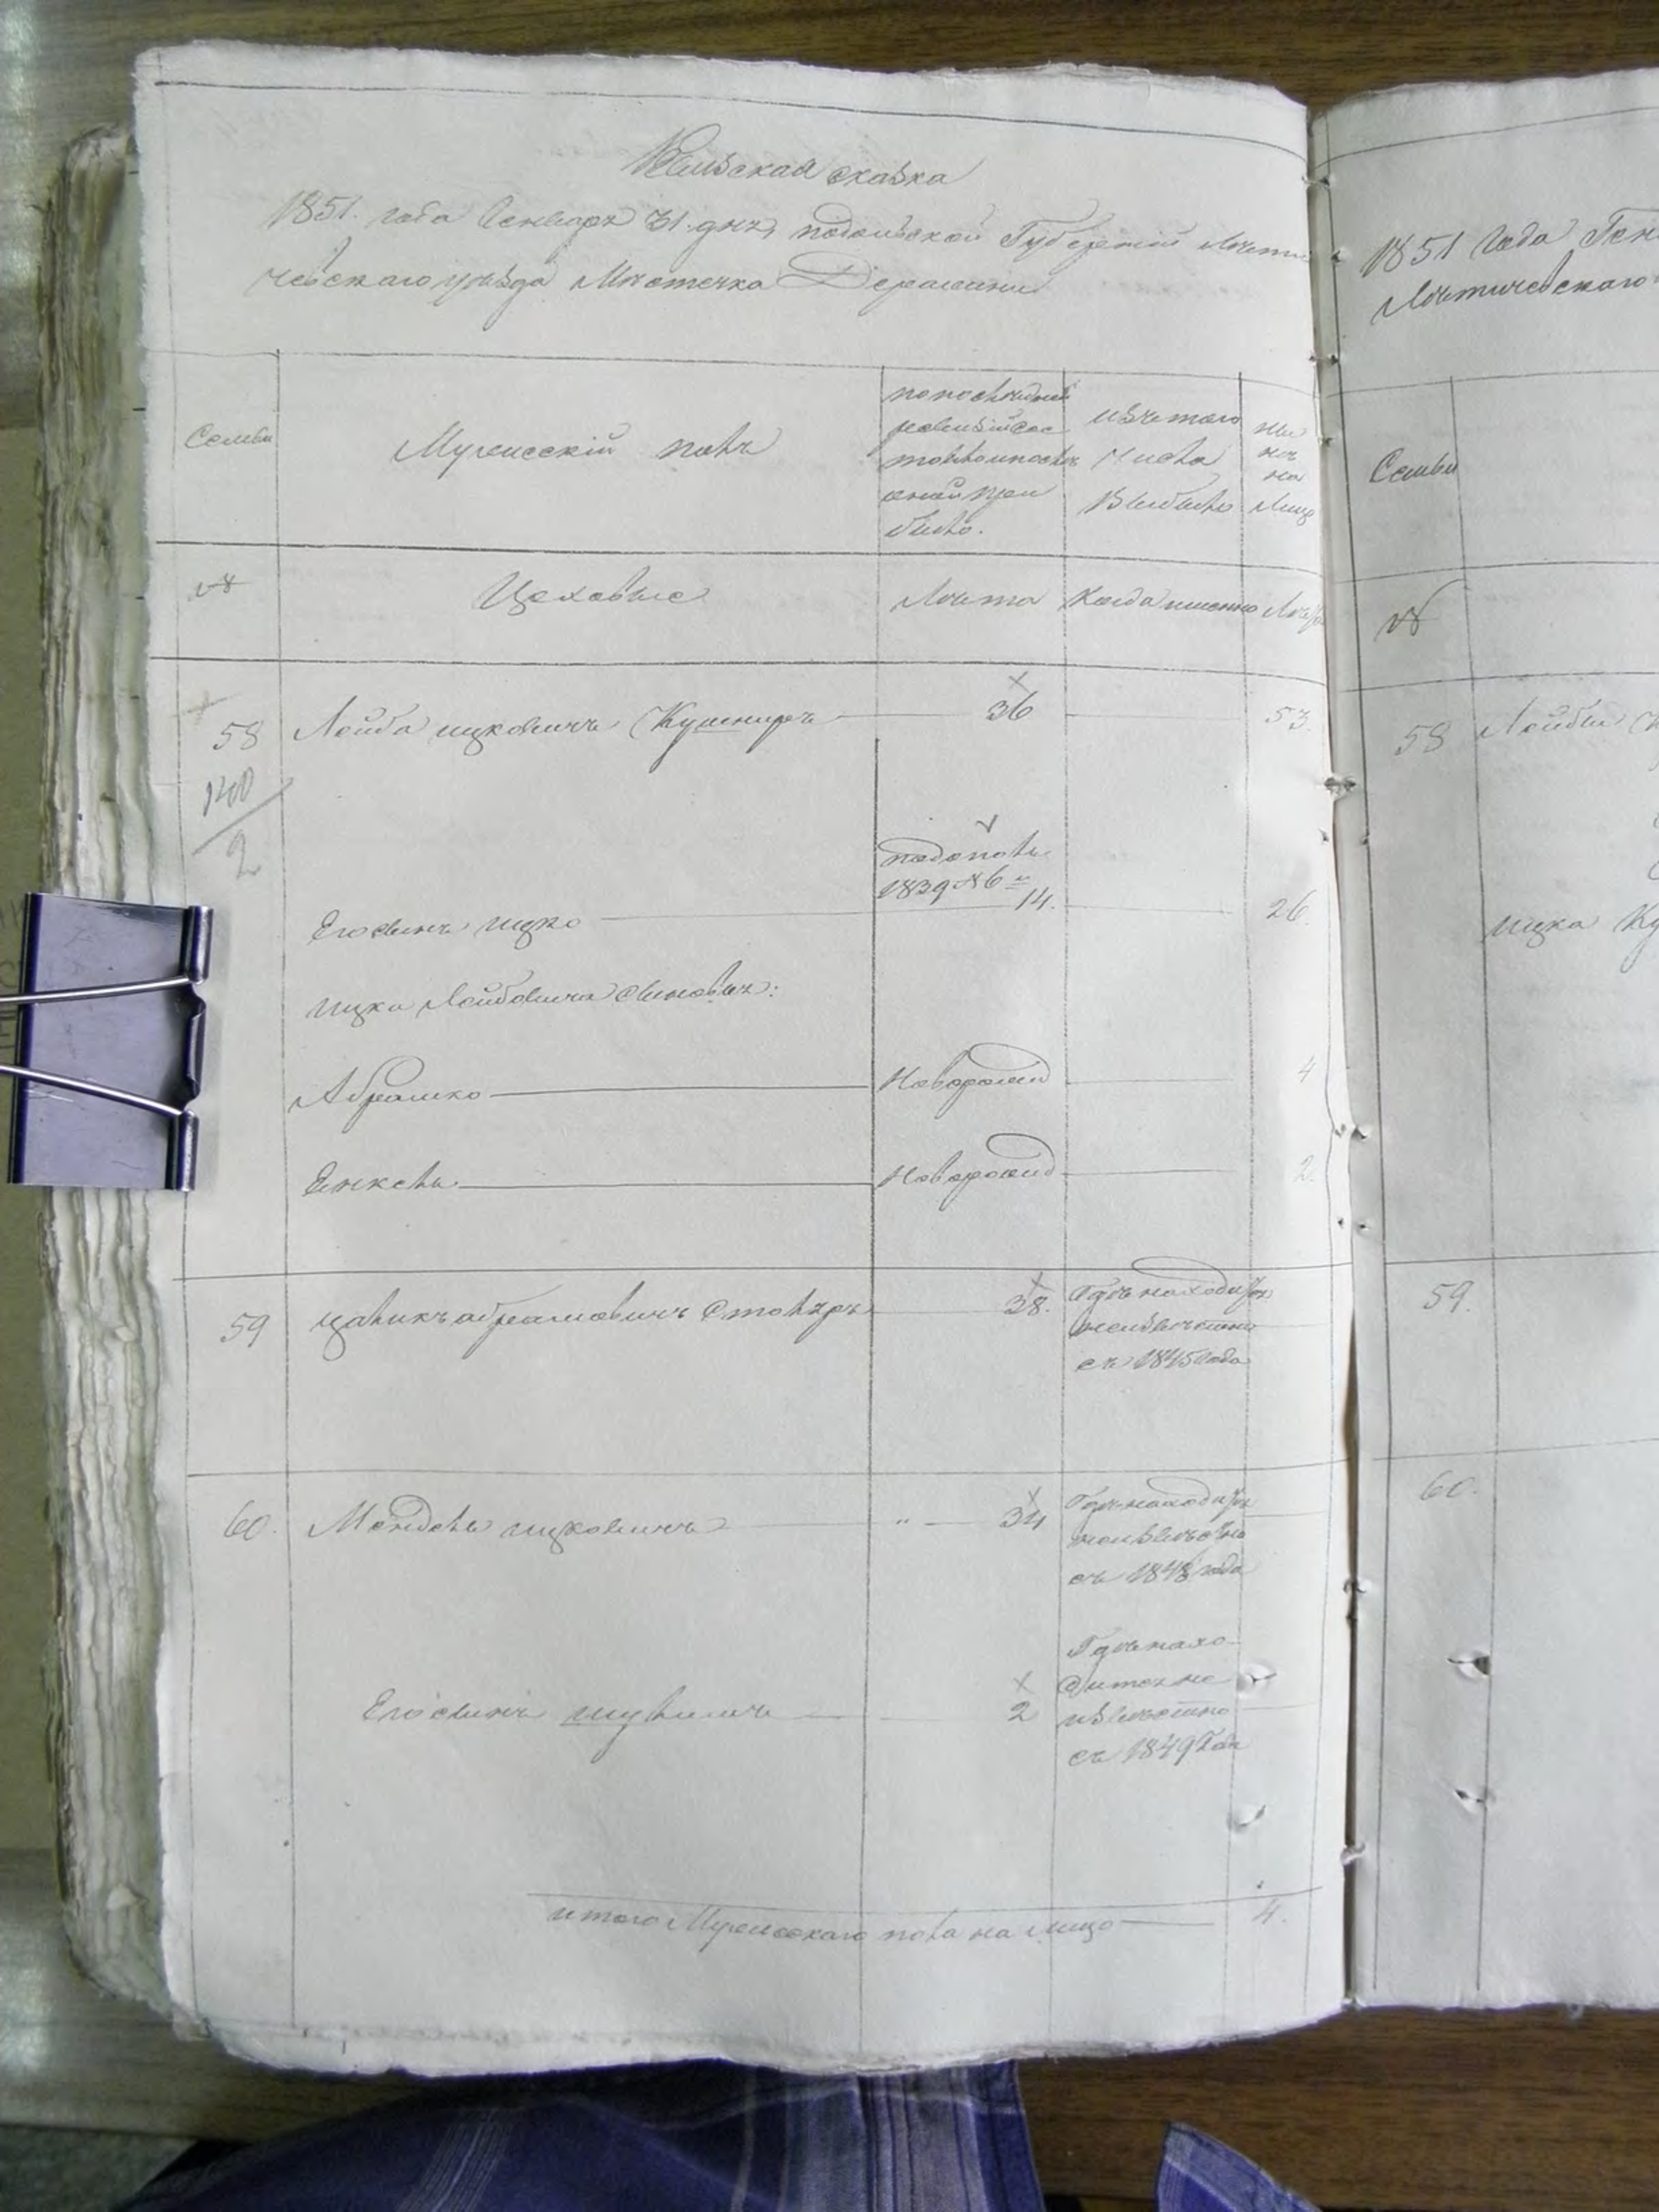 Ревизская сказка
1851. года Генваря 31. дня, подольской Губерний Лети
чевскаго уезда Местечка Деражни
Семьи
Мужескій полъ
по последней
ревизій сос
тояло и после
оной при
было.
изъ того
числа
Выбыло
ны
не
на
лицо
№
Цеховые
Лета
Когда именно
Лета
58
Лейба ицковичъ Кушниръ
36
53.
140
2
пополн
1839 № 6
14.
Его сынъ ицко
26.
ицка Лейбовича сыновья:
Абрамко
Новорожд
4
Енкель
Новорожд
2.
59
цаликъ абрамовичъ Столяръ
38.
Где находится
неизвестно
съ 1845 года
60.
Мендель ицковичъ
"
34
Где находится
неизвестно
съ 1848 года
Его сынъ шулимъ
2
Где нахо
дится не
известно
съ 1849 Года
итого Мужескаго пола на лицо
4.
1851 Года Ген
Летичевскаго
Семьи
№
58
Лейбы
ицка Ку
59.
60.